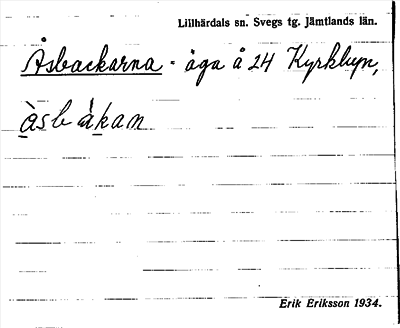 Lillhärdals sn. Svegs tg. Jämtlands län.
Åsbackarna - äga å 24 Kyrkbyn,
àsbåkan
Erik Eriksson 1934.